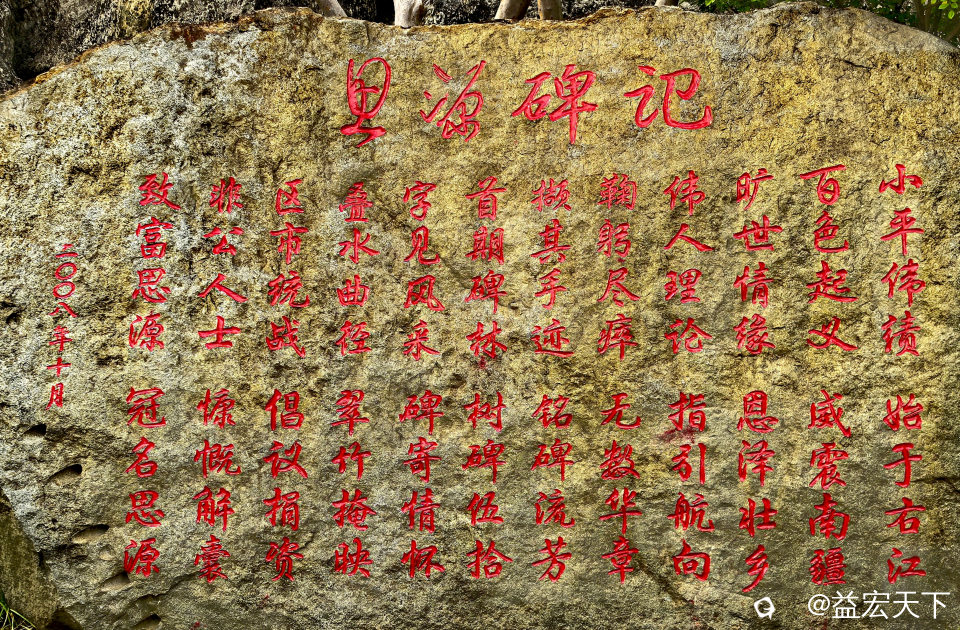 思源碑记
小平伟绩 始于右江
百色起义 威震南疆
旷世情缘 恩泽壮乡
伟人理论 指引航向
鞠躬尽瘁 无数华章
撷其手迹 铭碑流芳
首期碑林 树碑伍拾
字见风采 碑寄情怀
叠水曲径 翠竹掩映
区市统战 倡议捐资
非公人士 慷慨解囊
致富思源 冠名思源
二〇〇八年十月
@益宏天下